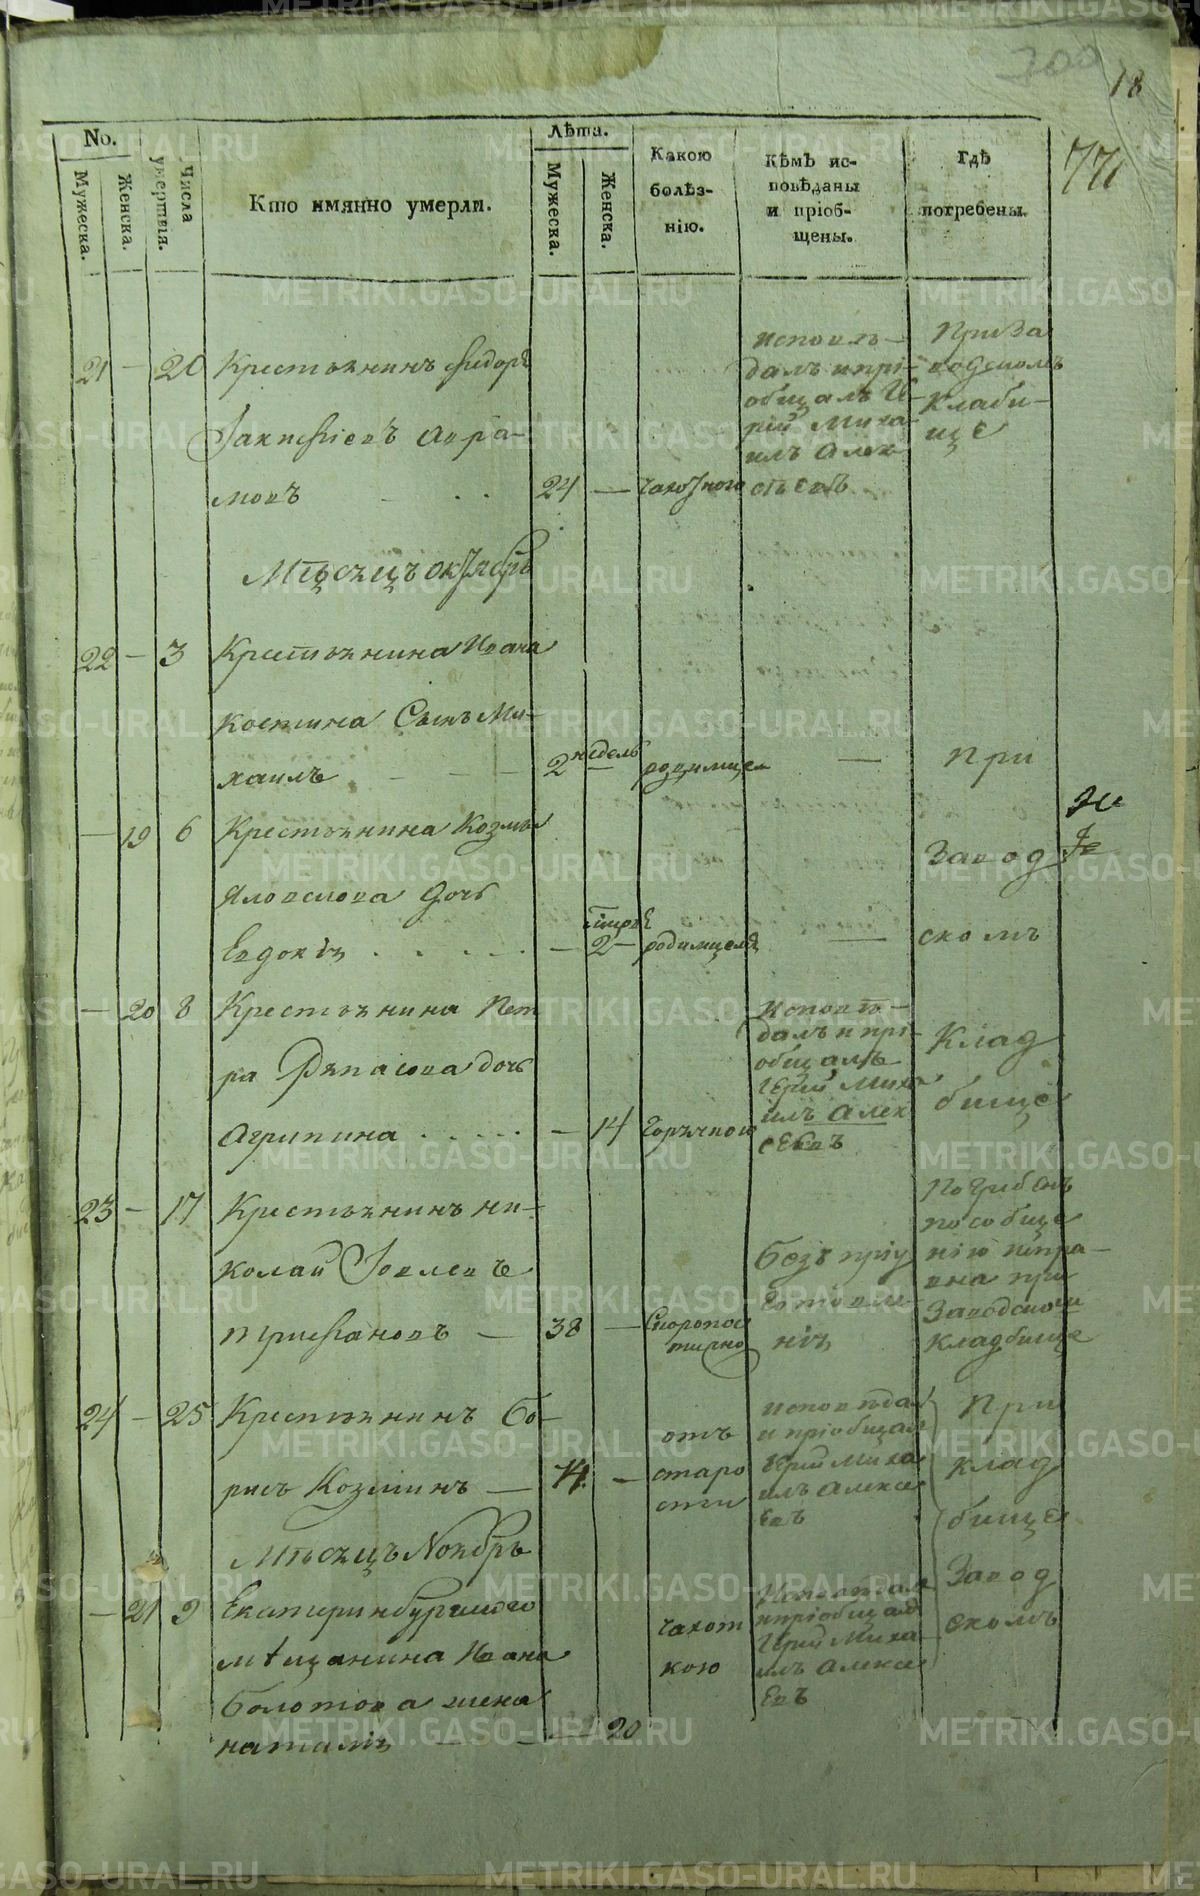 300
18
No.
Лѣта.
Мужеска.
Женска.
Числа умертвiя.
Кто имянно умерли.
Мужеска.
Женска.
Какою
болѣз-
нiю.
Кѣмъ ис-
повѣданы
и прiоб-
щены.
Гдѣ
погребены.
21 — 20 Крестьянинъ Ѳидоръ
Авра-
мовъ 24 — чахоткою
Исповѣ-
далъ и прi-
общалъ Iе-
рей Миха-
илъ Алек-
сѣевъ
При за-
водскомъ
Клаби-
ще
Мѣсяцъ октябрь
22 — 3 Крестьянина Ивана
Костина Сынъ Ми-
хаилъ — 2 недель родимцем —
— 19 6 Крестьянина Козмы
дочь
Евдокiя — 2 родимцемъ —
При
Завод
скомъ
Клад
бище
— 20 8 Крестьянина Пет
ра дочь
Агрипина — 14 Горячкою
Исповѣ-
далъ и прi-
общалъ
Iерей Миха
илъ Алек
сѣевъ
23 — 17 Крестьянинъ Ни-
колай Iовлевъ
— 38 — Скоропос
тижно
Безъ прiу
готовле-
нiя
Погребенъ
по сообще
нiю
при
Заводском
кладбище
24 — 25 Крестьянинъ Бо-
рисъ Козминъ — 74 —
отъ
старо
сти
исповѣдал
и прiобщал
Iерей Миха
илъ Алексе
евъ
При
клад
бище
Завод
скомъ
Мѣсяцъ Ноябрь
— 21 9 Екатеринбургскаго
мѣщанина Ивана
Болотова жена
наталiя — — 20
чахот
кою
Исповѣдал
и прiобщал
Iерей Миха
илъ Алексе
евъ
METRIKI.GASO-URAL.RU